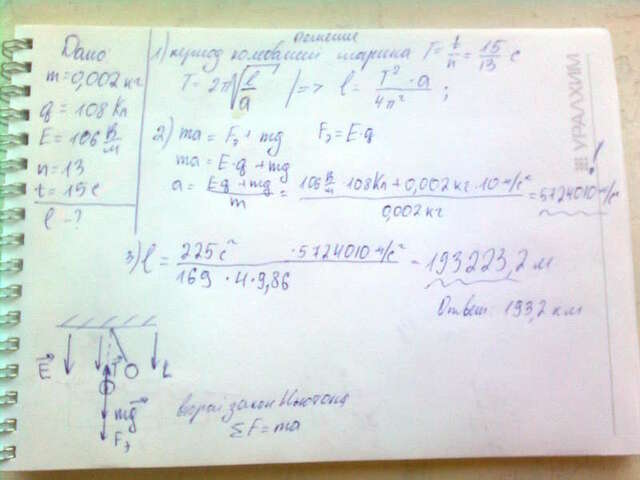 Решение
Дано
m=0,002 кг
q = 108 Кл
E = 106 В/м
n = 13
t = 15 с
l - ?
1) период колебаний шарика T = t/n = 15/13 с
T = 2π√(l/a) | => l = T²·a / 4π² ;
2) ma = Fэ + mg Fэ = E·q
ma = E·q + mg
a = (Eq + mg)/m = (106 В/м · 108 Кл + 0,002 кг · 10 м/с²) / 0,002 кг = 5724010 м/с² !
3) l = (225 с² · 5724010 м/с²) / (169 · 4 · 9,86) = 193223,2 м
Ответ: 193,2 км
E T L
mg
Fэ
второй закон Ньютона
ΣF = ma
УРАЛХИМ